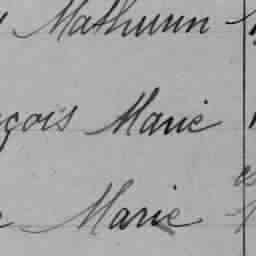 Mathurin
çois Marie
Marie